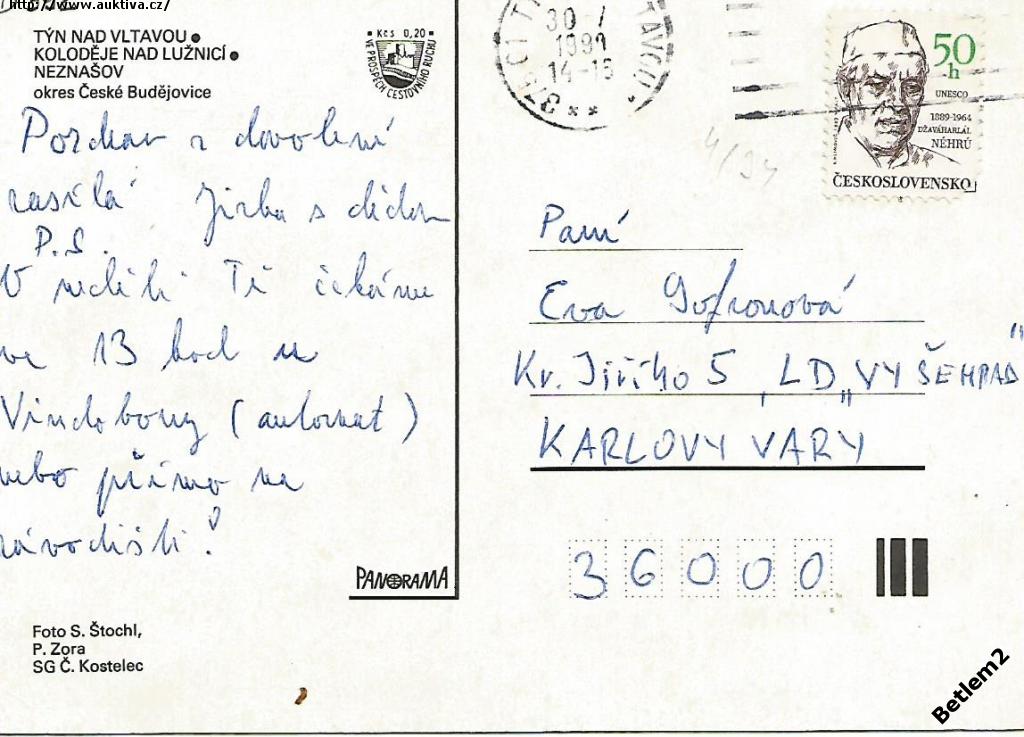 http://www.auktiva.cz/
TÝN NAD VLTAVOU ●
KOLODĚJE NAD LUŽNICÍ ●
NEZNAŠOV
okres České Budějovice
Kčs 0,20
VE PROSPĚCH CESTOVNÍHO RUCHU
Pozdrav z dovolené
zasílá Jirka s dědou
P.S.
V neděli Tě čekáme
ve 13 hod u
Vindobony (automat)
nebo přímo na
závodišti!
PANORAMA
Foto S. Štochl,
P. Zora
SG Č. Kostelec
30
14-15
50
h
UNESCO
1889-1964
DŽAVÁHARLÁL
NÉHRÚ
ČESKOSLOVENSKO
Paní
Eva Gofronová
Kr. Jiřího 5, LD „VYŠEHRAD"
KARLOVY VARY
36000
Betlem2